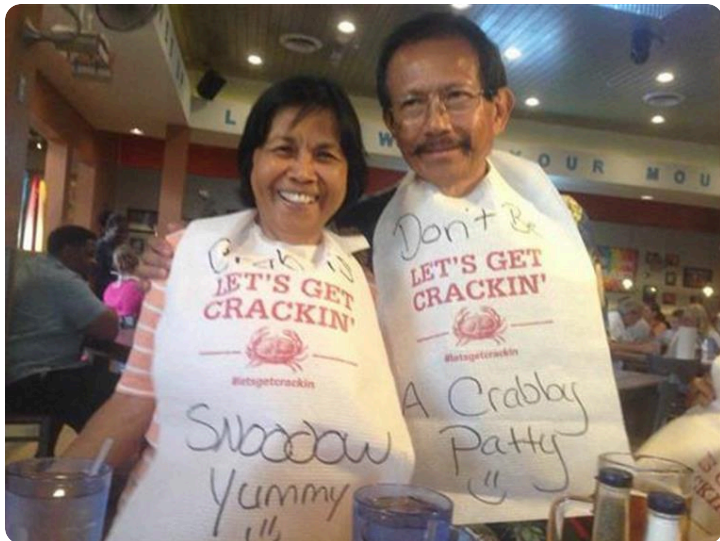 L W YOUR MOU
Crab is
LET'S GET
CRACKIN'
#letsgetcrackin
SNOOOOW
Yummy
Don't Be
LET'S GET
CRACKIN'
#letsgetcrackin
A Crabby
Patty